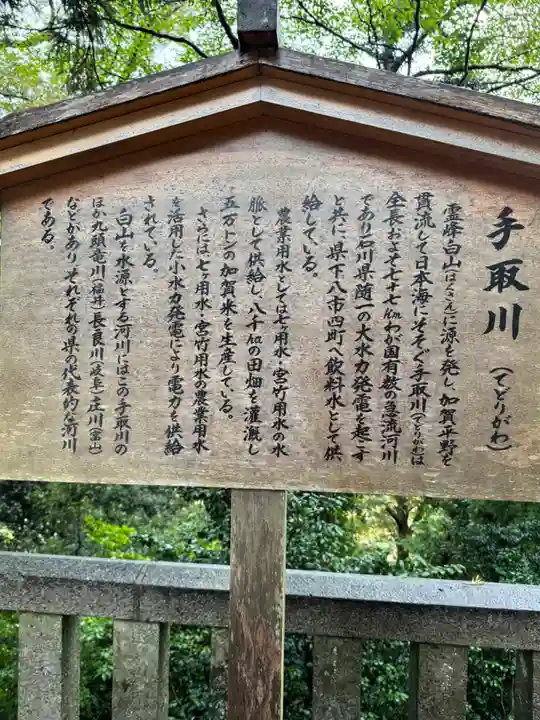 手取川
(てどりがわ)
霊峰白山(はくさん)に源を発し、加賀平野を
貫流して日本海にそそぐ手取川(てどりがわ)は
全長およそ七十七㎞わが国有数の急流河川
であり石川県随一の大水力発電を起こす
と共に、県下八市四町へ飲料水として供
給している。
農業用水としては七ヶ用水・宮竹用水の水
脈として供給し、八千㏊の田畑を灌漑し
五万トンの加賀米を生産している。
さらには、七ヶ用水・宮竹用水の農業用水
を活用した小水力発電により電力を供給
されている。
白山を水源とする河川にはこの手取川の
ほか九頭竜川(福井)長良川(岐阜)庄川(富山)
などがあり、それぞれの県の代表的な河川
である。